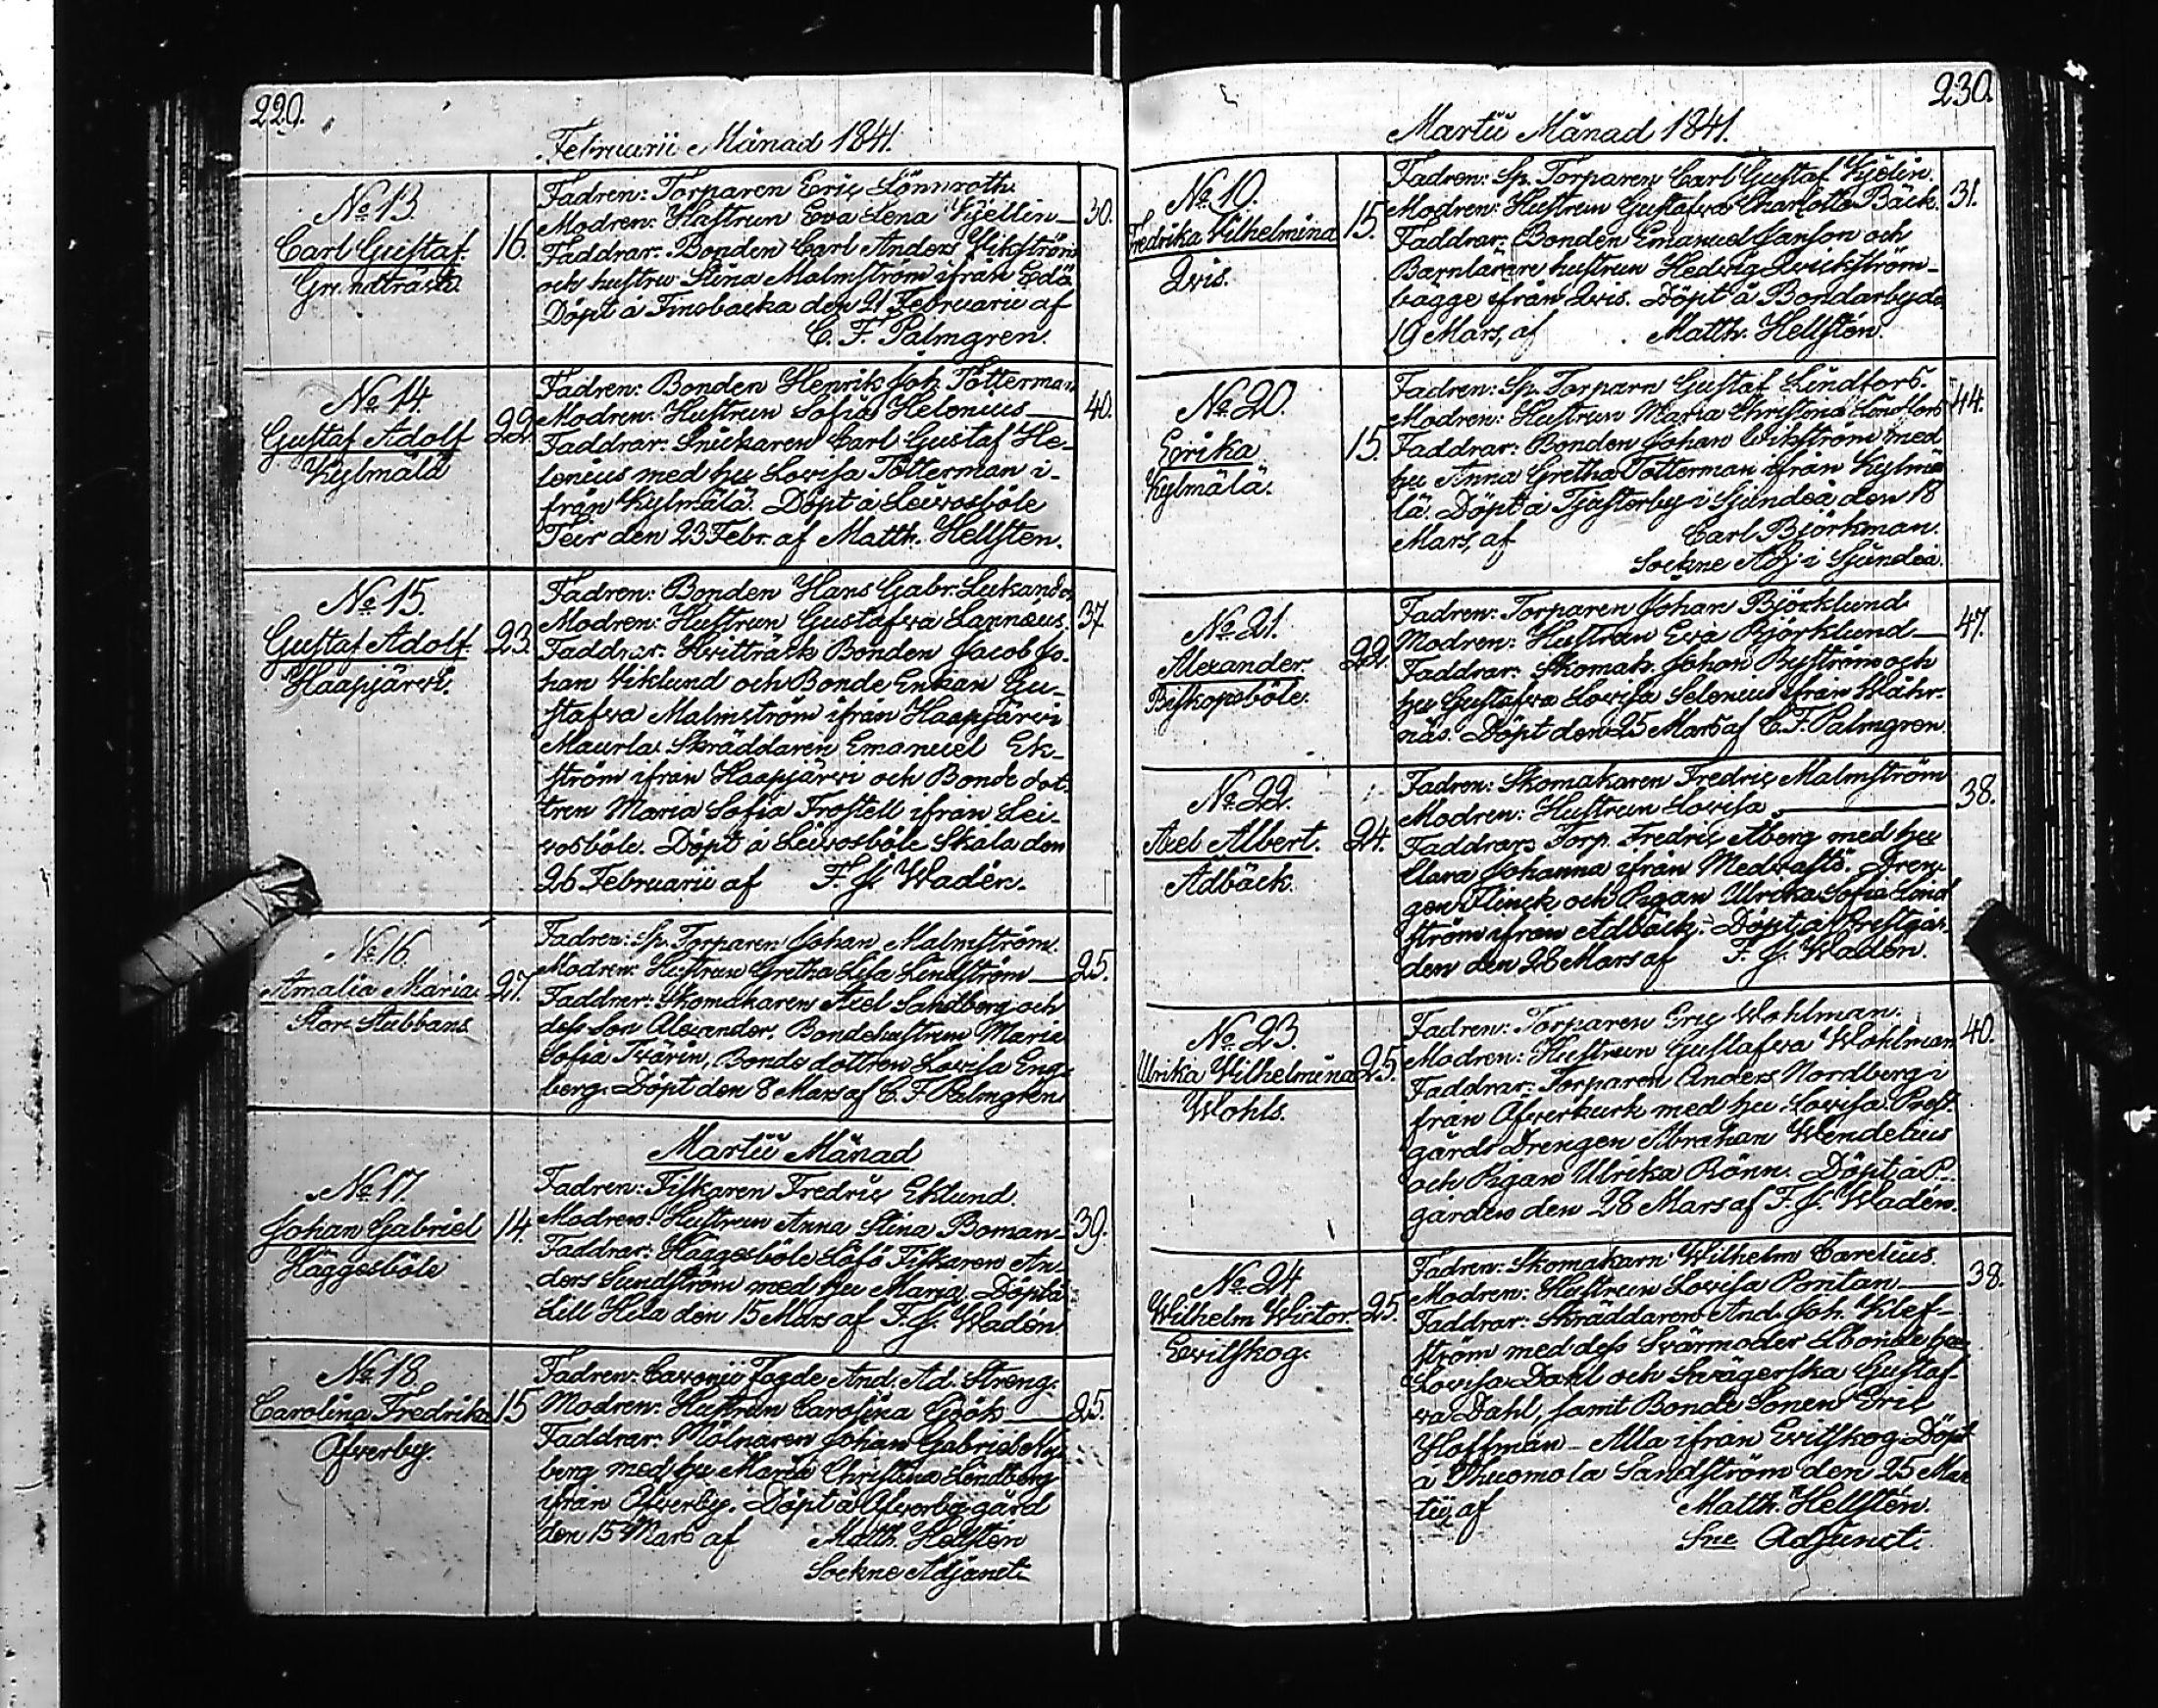 229.
Februarii Månad 1841.
No 13.
Carl Gustaf.
Grundträsk.
16.
Fadren: Torparen Eric Lönnroth.
Modren: Hustrun Eva Lena Kjellin
30.
Faddrar: Bonden Carl Anders Wikström
och hustru Stina Malmström ifrån Edö
Döpt å Finsbacka den 21 Februarii af
C. F. Palmgren.
No 14.
Gustaf Adolf
Kylmälä
22.
Fadren: Bonden Henrik Joh. Totterman
Modren: Hustrun Sofia Helenius
40.
Faddrar: Snickaren Carl Gustaf He-
lenius med hu Lovisa Totterman i-
från Kylmälä. Döpt å Leivosböle
Teir den 23 Febr. af Matth. Hellsten.
No 15.
Gustaf Adolf.
Haapjärvi.
23.
Fadren: Bonden Hans Gabr. Lukander
Modren: Hustrun Gustafva Lannæus.
37
Faddrar: Hvitträsk Bonden Jacob Jo-
han Wiklund och Bonde Enkan Gu-
stafva Malmström ifrån Haapjärvi
Maurla. Skräddaren Emanuel Ek-
ström ifrån Haapjärvi och Bonde dot-
tren Maria Sofia Frostell ifrån Lei-
vosböle. Döpt å Leivosböle Skåla den
26 Februarii af F. J. Wadén.
No 16.
Amalia Maria.
Stor Stubbans
27.
Fadren: Sp. Torparen Johan Malmström.
Modren: Hustrun Gretha Lisa Lindström
25.
Faddrar: Skomakaren Axel Sandberg och
dess Son Alexander, Bondehustrun Maria
Sofia Tvärin, Bonde dottren Lovisa Eng-
berg. Döpt den 8 Mars af C. F. Palmgren
Martii Månad
No 17.
Johan Gabriel
Häggesböle
14.
Fadren: Fiskaren Fredric Eklund.
Modren: Hustrun Anna Stina Boman
39.
Faddrar: Häggesböle Löfö Fiskaren An-
ders Sundström med hu Maria, Döpt å
Lill Hila den 15 Mars af F. J. Wadén
No 18.
Carolina Fredrika
Öfverby.
15
Fadren: Cavorii Fogde And. Ad. Streng.
Modren: Hustrun Carolina Göök
25.
Faddrar: Mölnaren Johan Gabriel Ny-
berg med hu Maria Christina Lindberg
ifrån Öfverby. Döpt å Öfverby gård
den 15 Mars af Matth. Hellsten
Sockne Adjunct.
230.
Martii Månad 1841.
No 19.
Fredrika Wilhelmina
Qvis.
15.
Fadren: Sp. Torparen Carl Gustaf Kjelin.
Modren: Hustrun Gustafva Charlotta Bäck.
31.
Faddrar: Bonden Emanuel Janson och
Barnlärare hustrun Hedvig Qvickström
bägge ifrån Qvis. Döpt å Bondarby d.
19 Mars, af Matth. Hellstén.
No 20.
Erika
Kylmälä.
15.
Fadren: Sp. Torparn Gustaf Lindfors.
Modren: Hustrun Maria Christina Lindfors
44.
Faddrar: Bonden Johan Wikström med
hu Anna Gretha Totterman ifrån Kylmä
lä. Döpt å Tjusterby i Sjundeå den 18
Mars, af Carl Björkman.
Sockne Adj: i Sjundeå.
No 21.
Alexander
Biskopsböle.
22.
Fadren: Torparen Johan Björklund
Modren: Hustrun Eva Björklund
47.
Faddrar: Skomak. Johan Byström och
hu Gustafva Lovisa Selenius ifrån Währ-
näs. Döpt den 25 Mars af C. F. Palmgren
No 22.
Axel Albert.
Adbäck.
24.
Fadren: Skomakaren Fredric Malmström
Modren: Hustrun Lovisa
38.
Faddrar: Torp. Fredric Åberg med hu
Clara Johanna ifrån Medvastö. Dren-
gen Flinck och Pigan Ulrika Sofia Lind
ström ifrån Adbäck. Döpt å Prestgår-
den den 28 Mars af F. J. Wadén.
No 23.
Ulrika Wilhelmina
Wohls.
25.
Fadren: Torparen Eric Wohlman.
Modren: Hustrun Gustafva Wohlman
40.
Faddrar: Torparen Anders Nordberg i
från Öfverkurk med hu Lovisa. Prest-
gårds Drengen Abraham Wendelius
och Pigan Ulrika Rönn. Döpt å P-
gården den 28 Mars af F. J. Wadén.
No 24
Wilhelm Wictor.
Evitskog.
25.
Fadren: Skomakarn Wilhelm Carelius.
Modren: Hustrun Lovisa Pontan
38.
Faddrar: Skräddaren And. Joh. Klef-
ström med dess Svärmoder Lbonde hu
Lovisa Dahl och Svägerska Gustaf-
va Dahl, samt Bonde Sonen Eric
Hoffman - Alla ifrån Evitskog. Döpt
å Thuomola Sandström den 25 Mar
tii, af Matth. Hellstén.
Sne Adjunct.